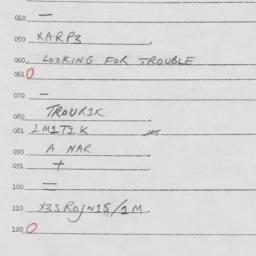 040. —
050 XARP3
060. LOOKING FOR TROUBLE
061 0
070 —
080 TROUR1K
081 1M1T1K
090 A NAR
091 +
100 =
110 X35ROJN1S/1M.
120 0